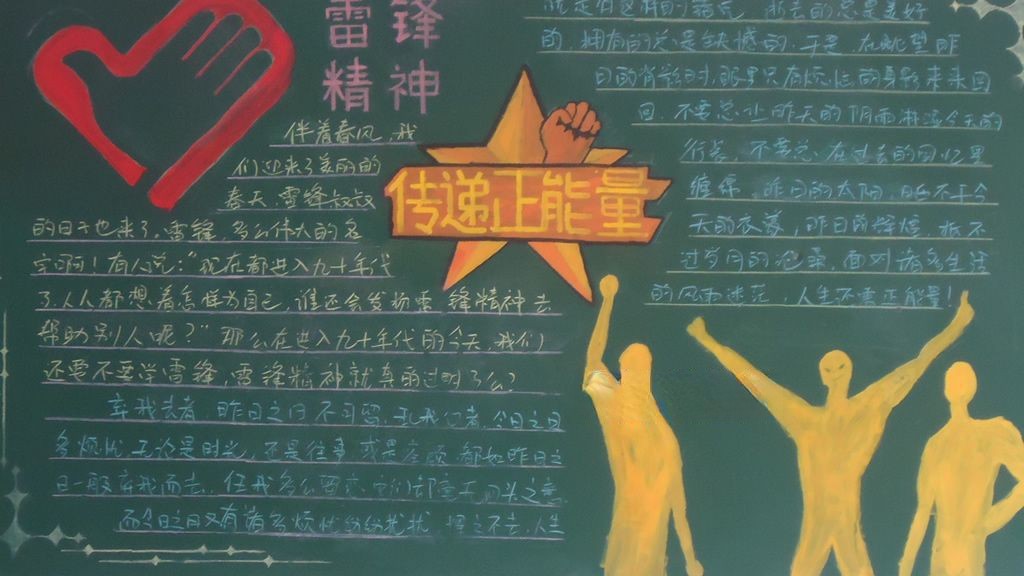 雷锋
精神
传递正能量
伴着春风,我
们迎来了美丽的
春天,雷锋叔叔
的日子也来了,雷锋,多么伟大的名
字啊!有人说:"现在都进入九十年代
了,人人都想着怎样为自己,谁还会发扬雷锋精神去
帮助别人呢?"那么在进入九十年代的今天,我们
还要不要学雷锋,雷锋精神就真的过时了么?
弃我去者,昨日之日不可留,乱我心者,今日之日
多烦忧,无论是时光,不是往事,或是
日一般弃我而去,任我多么留恋,它们都毫无回头之意
而今日之日又有诸多烦忧纷纷扰扰,挥之不去,人生
的,拥有的总是缺憾的,于是,在眺望昨
日的背影时,眼里只有
不要总让昨天的阴雨淋湿今天的
行装,不要总在过去的回忆里
缠绵,昨日的太阳,晒不干今
天的衣裳,昨日的
面对诸多生活
的风雨迷茫,人生还需正能量!